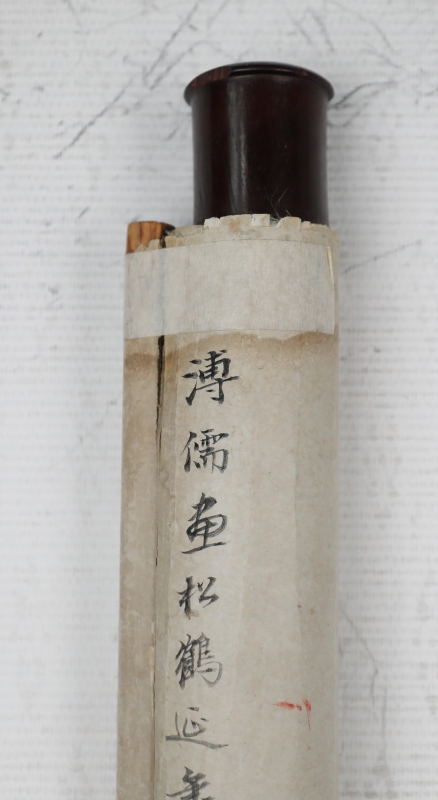 溥儒画松鶴延年